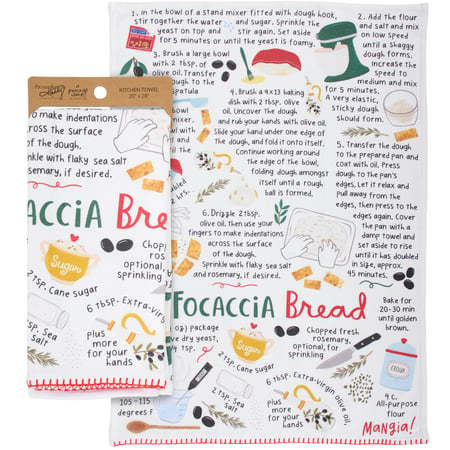 KITCHEN TOWEL
20" x 28"
to make indentations
across the surface
of the dough.
Sprinkle with flaky sea salt
rosemary, if desired.
CACCIA Bread
Sugar
2 tsp. Cane Sugar
6 tbsp. Extra-virgin
plus
more
for your
hands
2 tsp. Sea
Salt
105 - 115
degrees F
1. In the bowl of a stand mixer fitted with dough hook,
stir together the water and sugar. Sprinkle the
yeast on top and stir again. Set aside
for 5 minutes or until the yeast is foamy.
2. Add the flour
and salt and mix
on low speed
until a shaggy
dough forms,
increase the
speed to
medium and mix
for 5 minutes.
A very elastic,
sticky dough
should form.
3. Brush a large bowl
with 2 tbsp. of
olive oil. Transfer
dough to the
4. Brush a 9x13 baking
dish with 2 tbsp. olive
oil. Uncover the dough
and rub your hands with olive oil.
Slide your hand under one edge
of the dough, and fold it onto itself.
Continue working around
the edge of the bowl,
folding dough
until a rough
ball is formed.
5. Transfer the dough
to the prepared pan and
coat with oil. Press
dough to the pan's
edges. Let it relax and
pull away from the
edges, then press to the
edges again. Cover
the pan with a
damp towel and
set aside to rise
until it has doubled
in size, approx.
45 minutes.
6. Drizzle 2 tbsp.
olive oil, then use your
fingers to make indentations
across the surface of
the dough.
Sprinkle with flaky sea salt
and rosemary, if desired.
FOCACCIA Bread
Bake for
20-30 min
until golden
brown.
package
dry yeast,
Sugar
2 tsp. Cane Sugar
Chopped fresh
rosemary,
optional, for
sprinkling
6 tbsp. Extra-virgin olive oil,
plus
more
for your
hands
2 tsp.
Sea
Salt
4 c.
All-purpose
flour
Mangia!